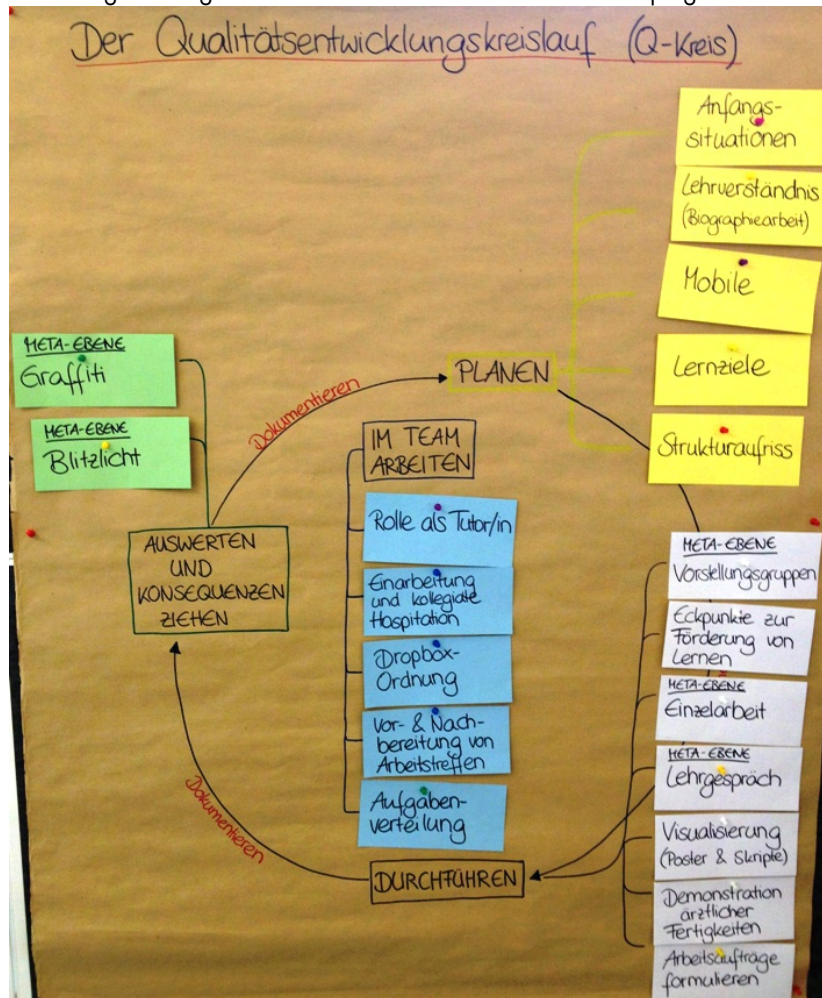 Der Qualitätsentwicklungskreislauf (Q-Kreis)
Anfangs-
situationen
Lehrverständnis
(Biographiearbeit)
Mobile
Lernziele
Strukturaufriss
META-EBENE
Graffiti
META-EBENE
Blitzlicht
Dokumentieren
PLANEN
IM TEAM
ARBEITEN
Rolle als Tutor/in
Einarbeitung
und kollegiale
Hospitation
Dropbox-
Ordnung
Vor- & Nach-
bereitung von
Arbeitstreffen
Aufgaben-
verteilung
AUSWERTEN
UND
KONSEQUENZEN
ZIEHEN
META-EBENE
Vorstellungsgruppen
Eckpunkte zur
Förderung von
Lernen
META-EBENE
Einzelarbeit
META-EBENE
Lehrgespräch
Visualisierung
(Poster & Skripte)
Demonstration
ärztlicher
Fertigkeiten
Arbeitsaufträge
formulieren
Dokumentieren
DURCHFÜHREN